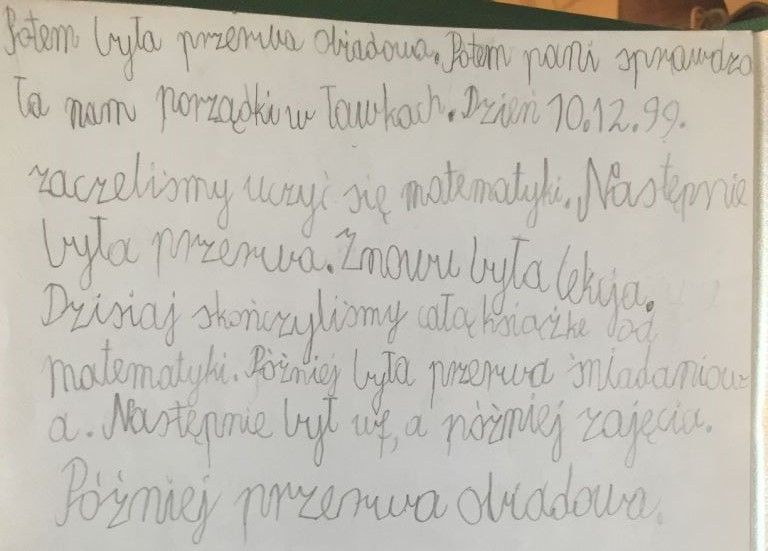 Potem była przerwa obiadowa. Potem pani sprawdza
ła nam porządki w ławkach. Dzień 10.12.99.
zaczelismy uczyć się matematyki. Następnie
była przerwa. Znowu była lekcja.
Dzisiaj skończylismy całą książke od
matematyki. Póżniej była przerwa śniadaniow
a. Następnie był wf, a póżniej zajęcia.
Póżniej przerwa obiadowa.